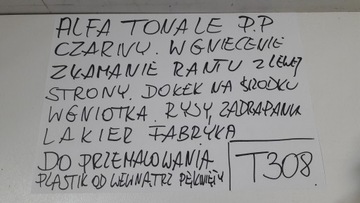 ALFA TONALE P.P
CZARNY. WGNIECENIE
ZŁAMANIE RANTU Z LEWEJ
STRONY. DOŁEK NA ŚRODKU
WGNIOTKA. RYSY, ZADRAPANIA
LAKIER FABRYKA
DO PRZEMALOWANIA
PLASTIK OD WEWNĄTRZ PĘKNIĘTY
T308.